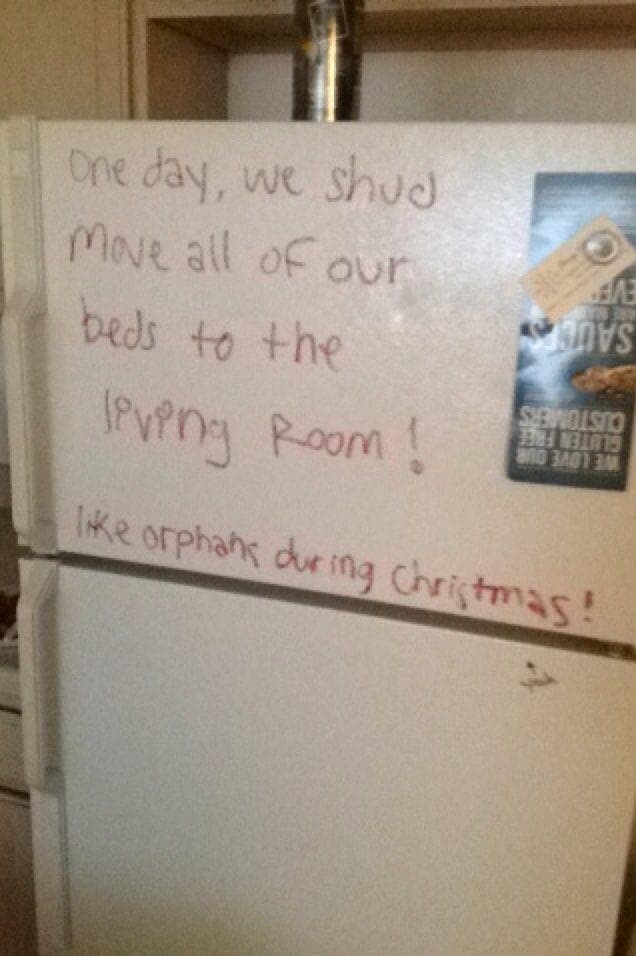 One day, we shud
Move all of our
beds to the
living Room!
like orphans during Christmas!
WE LOVE OUR
GLUTEN FREE
CUSTOMERS